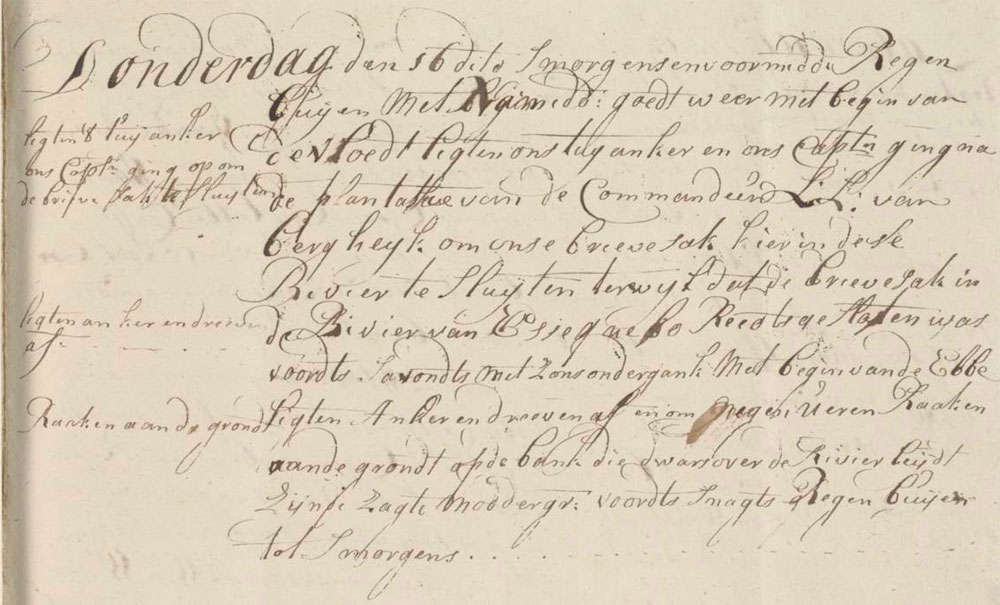 Donderdag den 16 dito Smorgens en voormidd: Regen
Buijen Met Namidd: goedt weer met begin van
de vloedt ligten ons tuy anker en ons Captn ging na
de plantasie van de Commandeur L: L: van
Bergheyk om onse brieve sak hier in dese
Rivier te sluyten terwijl dat de brieve sak in
de Rivier van Essequebo Reedts geslooten was
voordts Savondts met Zons ondergank Met begin van de Ebbe
ligten Anker en dreeven af en om negen Ueren Raaken
aan de grondt op de bank die dwars over de Rivier leijdt
Zijnde Zagte Moddergr: voordts Snagts Regen Buijen
tot Smorgens
ligten t tuij anker
ons Captn ging op om
de brieve sak te sluyten
ligten anker en dreeven
af
Raaken aan de grondt